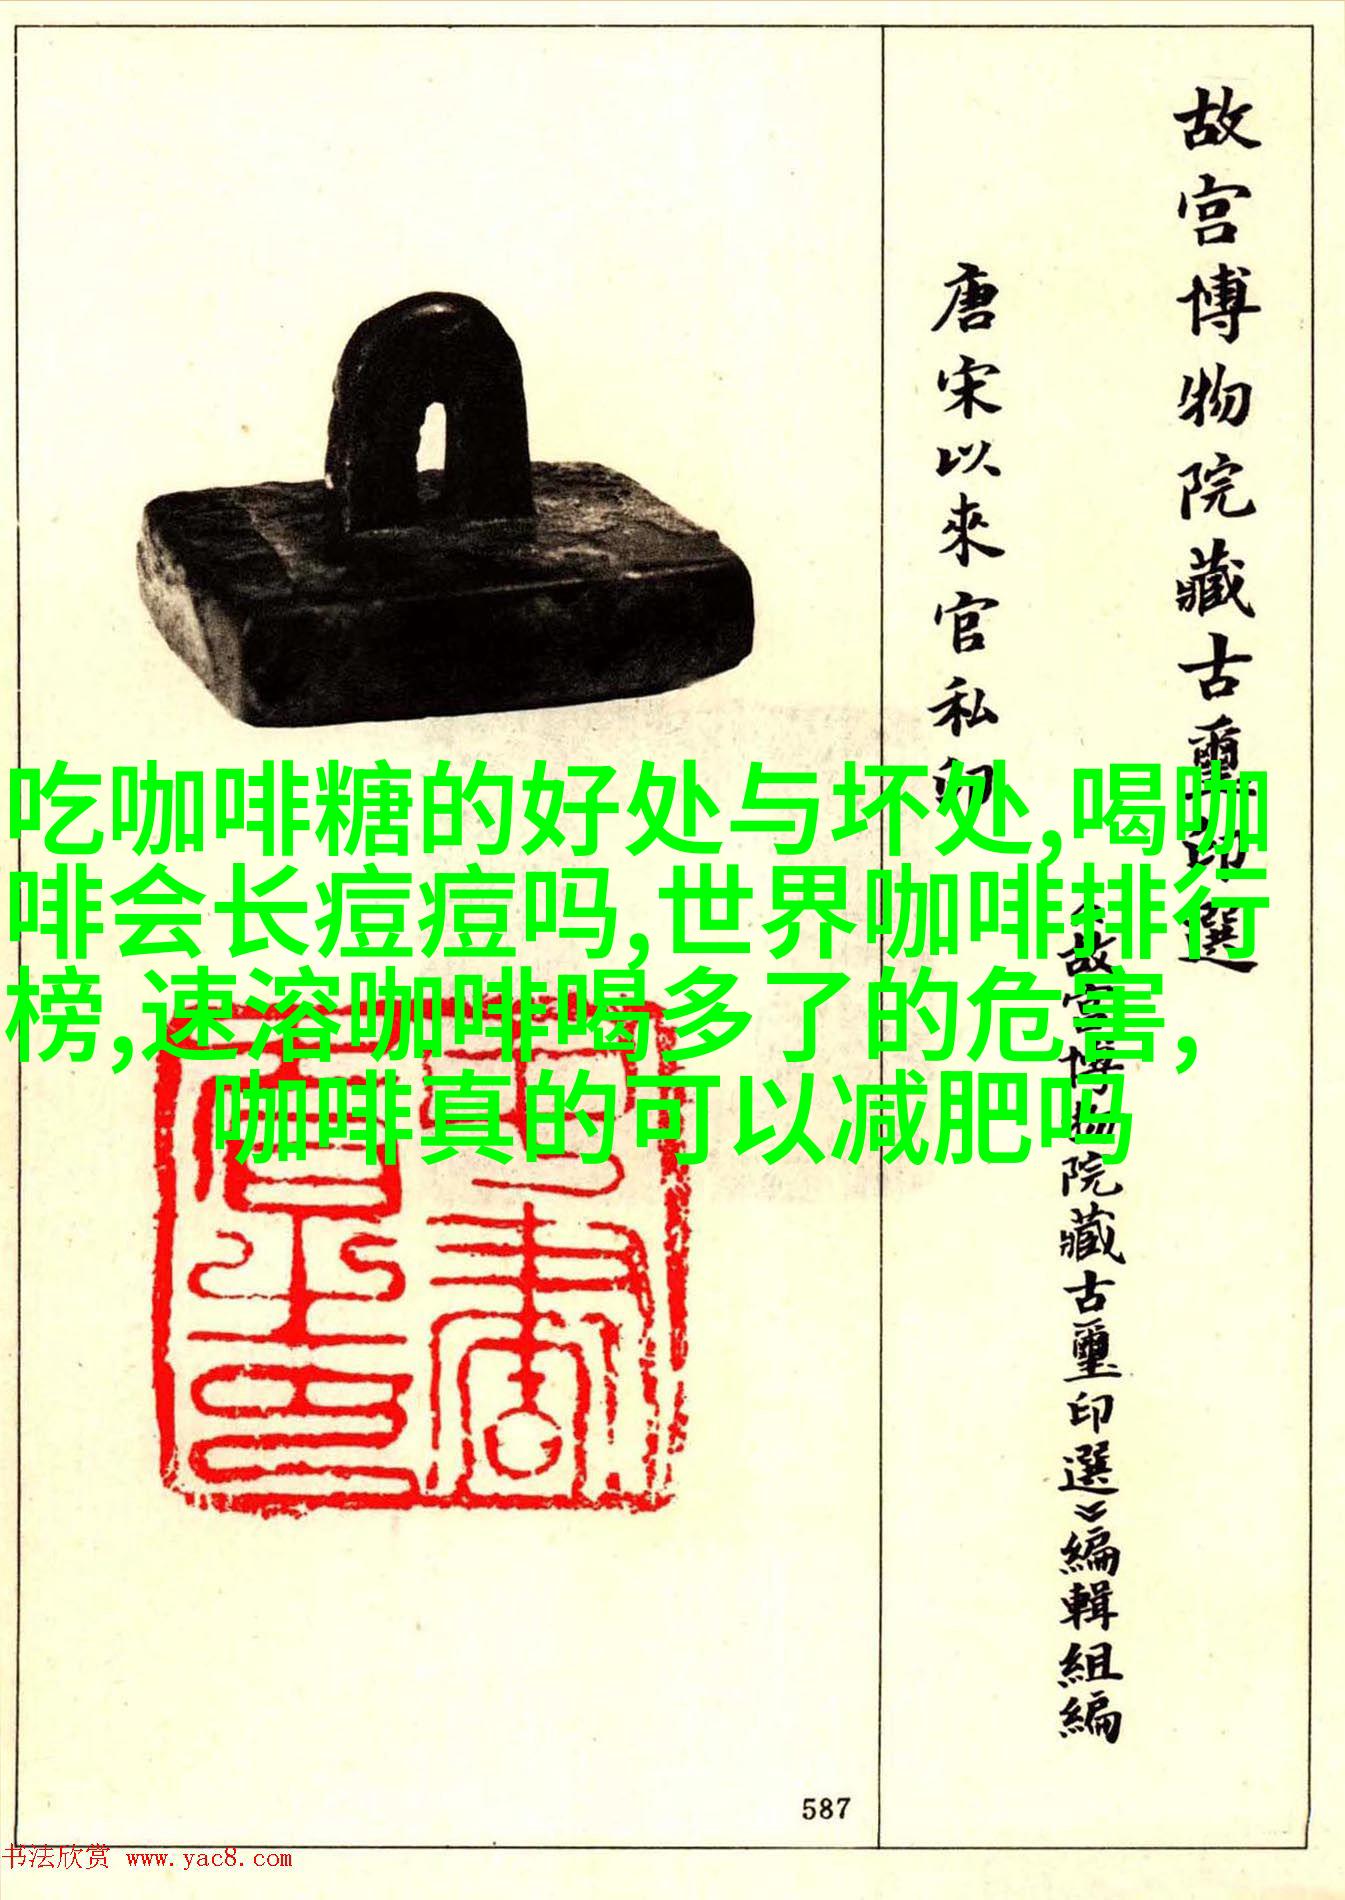 故宫博物院藏古璽印選
《故宫博物院藏古璽印選》編輯組編
唐宋以來官私印
吃咖啡糖的好处与坏处,喝咖
啡会长痘痘吗,世界咖啡排行
榜,速溶咖啡喝多了的危害,
咖啡真的可以减肥吗
587
书法欣赏 www.yac8.com